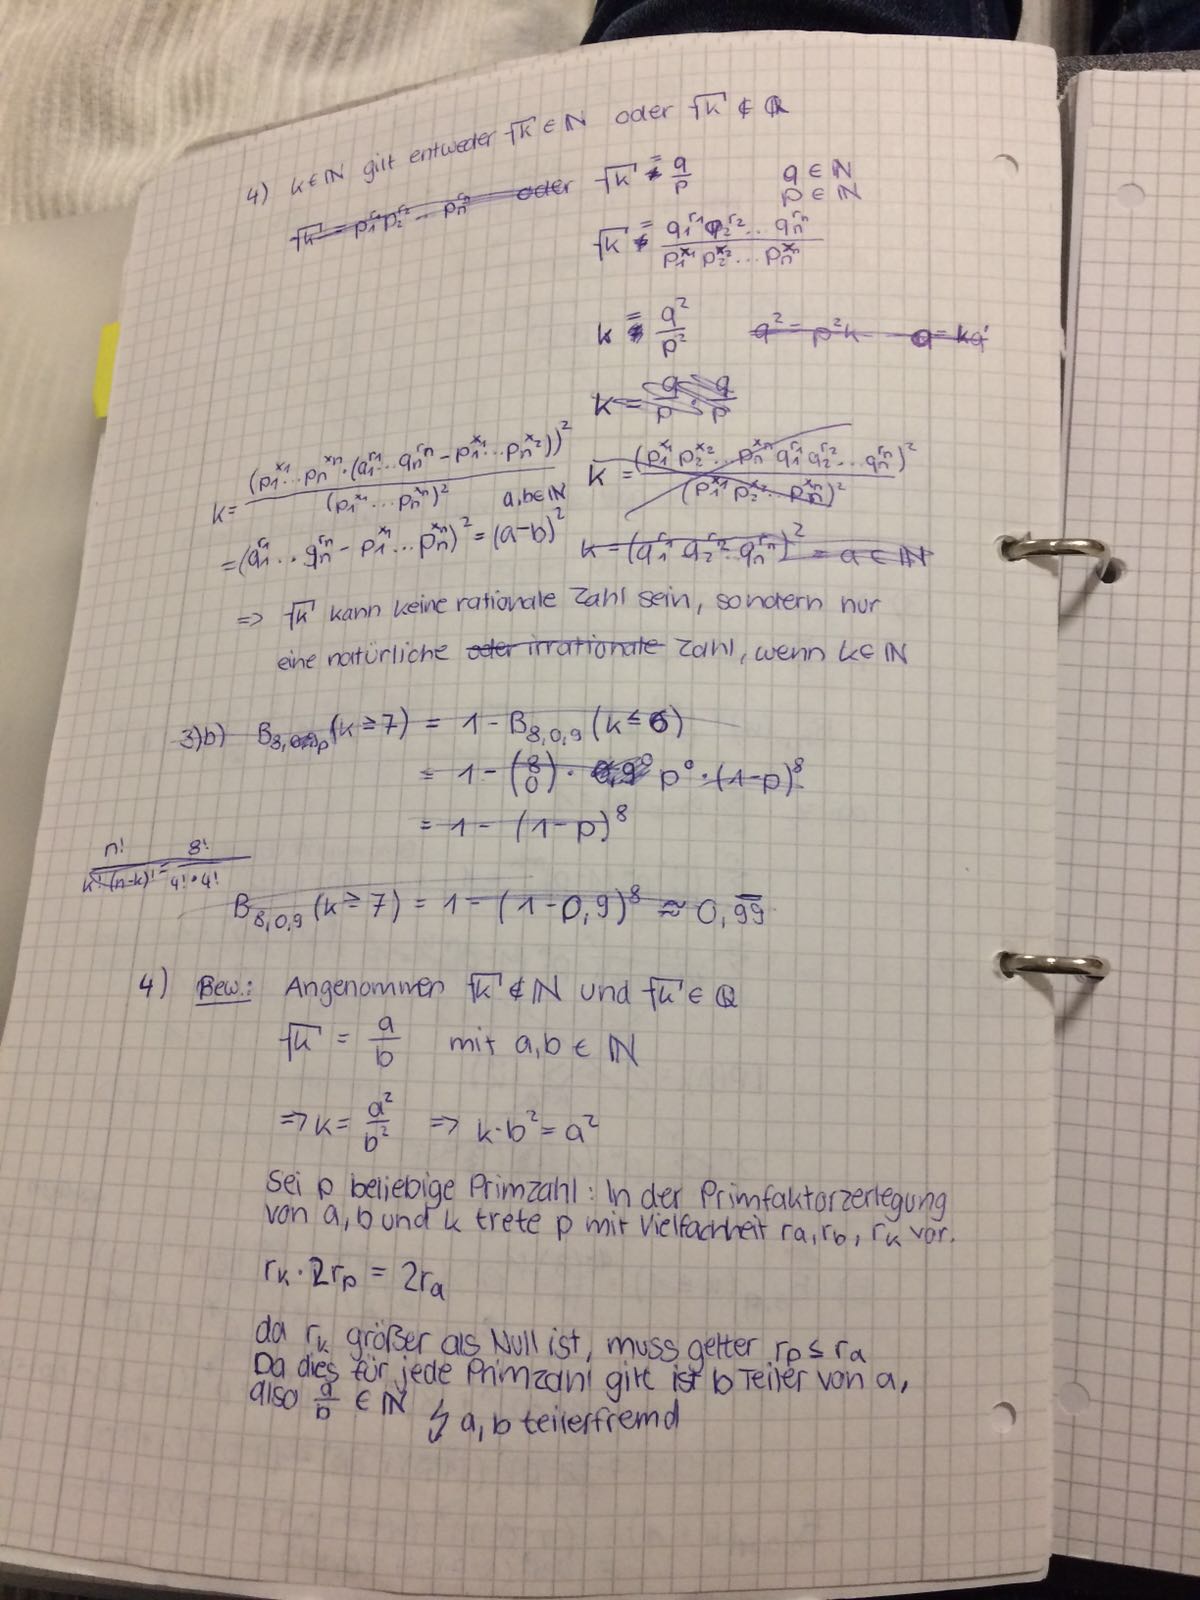 4) k∈ℕ gilt entweder √k ∈ ℕ oder √k ∉ ℚ
√k = p₁^r₁ p₂^r₂ ... pₙ^rₙ oder √k = q/p q ∈ ℕ
p ∈ ℕ
√k = (q₁^r₁ q₂^r₂ ... qₙ^rₙ)/(p₁^x₁ p₂^x₂ ... pₙ^xₙ)
k = q²/p² q² = p²k
k = q/p · q/p
k = (p₁^x₁ ... pₙ^xₙ · (q₁^r₁ ... qₙ^rₙ - p₁^x₁ ... pₙ^x₂))²/(p₁^x₁ ... pₙ^xₙ)² a,b∈ℕ
k = (p₁^x₁ p₂^x₂ ... pₙ^xₙ q₁^r₁ q₂^r₂ ... qₙ^rₙ)²/(p₁^x₁ p₂^x₂ ... pₙ^xₙ)²
= (q₁^r₁ ... qₙ^rₙ - p₁^x₁ ... pₙ^xₙ)² = (a-b)²
k = (q₁^r₁ q₂^r₂ ... qₙ^rₙ)² = a ∈ ℕ
=> √k kann keine rationale Zahl sein, sondern nur
eine natürliche oder irrationale Zahl, wenn k∈ℕ
3)b) (k ≥ 7) = 1 - B₈,₀,₉ (k ≤ 6)
= 1 - (8 0) · p⁰ · (1-p)⁸
= 1 - (1-p)⁸
n!/(k!·(n-k)!) = 8!/(4!·4!)
B₈,₀,₉ (k ≥ 7) = 1 - (1-0,9)⁸ ≈ 0,99̅
4) Bew.: Angenommen √k ∉ ℕ und √k ∈ ℚ
√k = a/b mit a,b ∈ ℕ
=> k = a²/b² => k·b² = a²
Sei p beliebige Primzahl: In der Primfaktorzerlegung
von a, b und k trete p mit Vielfachheit rₐ, r_b, r_k vor.
r_k · 2r_p = 2rₐ
da r_k größer als Null ist, muss gelten r_p ≤ rₐ
Da dies für jede Primzahl gilt ist b Teiler von a,
also a/b ∈ ℕ
↯ a, b teilerfremd